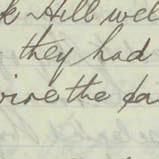 k Hill wel
they had
wire the da